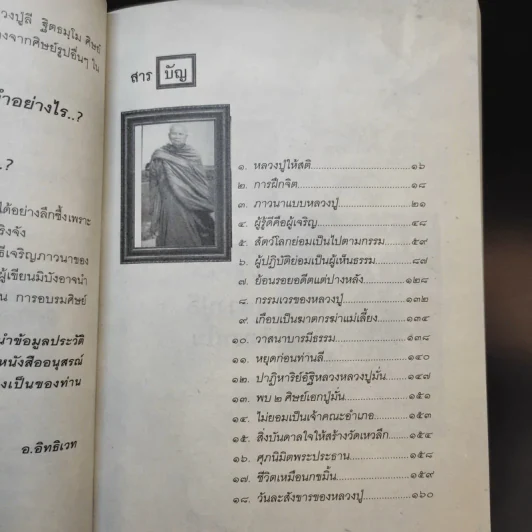 งปู่ลี ฐิตธมฺโม ศิษย์
งจากศิษย์รูปอื่นๆ ใน
ทำอย่างไร..?
..?
ได้อย่างลึกซึ้งเพราะ
ริงจัง
ธีเจริญภาวนาของ
ผู้เขียนมิบังอาจนำ
น การอบรมศิษย์
นำข้อมูลประวัติ
หนังสืออนุสรณ์
งเป็นของท่าน
อ.อิทธิเวท
สาร บัญ
๑. หลวงปู่ให้สติ ๑๖
๒. การฝึกจิต ๑๘
๓. ภาวนาแบบหลวงปู่ ๒๑
๔. ผู้รู้ดีคือผู้เจริญ ๔๘
๕. สัตว์โลกย่อมเป็นไปตามกรรม ๕๙
๖. ผู้ปฏิบัติย่อมเป็นผู้เห็นธรรม ๘๗
๗. ย้อนรอยอดีตแต่ปางหลัง ๑๒๘
๘. กรรมเวรของหลวงปู่ ๑๓๒
๙. เกือบเป็นฆาตกรฆ่าแม่เลี้ยง ๑๓๔
๑๐. วาสนาบารมีธรรม ๑๓๘
๑๑. หยุดก่อนท่านลี ๑๔๐
๑๒. ปาฏิหาริย์อัฐิหลวงหลวงปู่มั่น ๑๔๗
๑๓. พบ ๒ ศิษย์เอกปู่มั่น ๑๕๑
๑๔. ไม่ยอมเป็นเจ้าคณะอำเภอ ๑๕๓
๑๕. สิ่งบันดาลใจให้สร้างวัดเหวลึก ๑๕๔
๑๖. ศุภนิมิตพระประธาน ๑๕๘
๑๗. ชีวิตเหมือนกขมิ้น ๑๕๙
๑๘. วันละสังขารของหลวงปู่ ๑๖๐